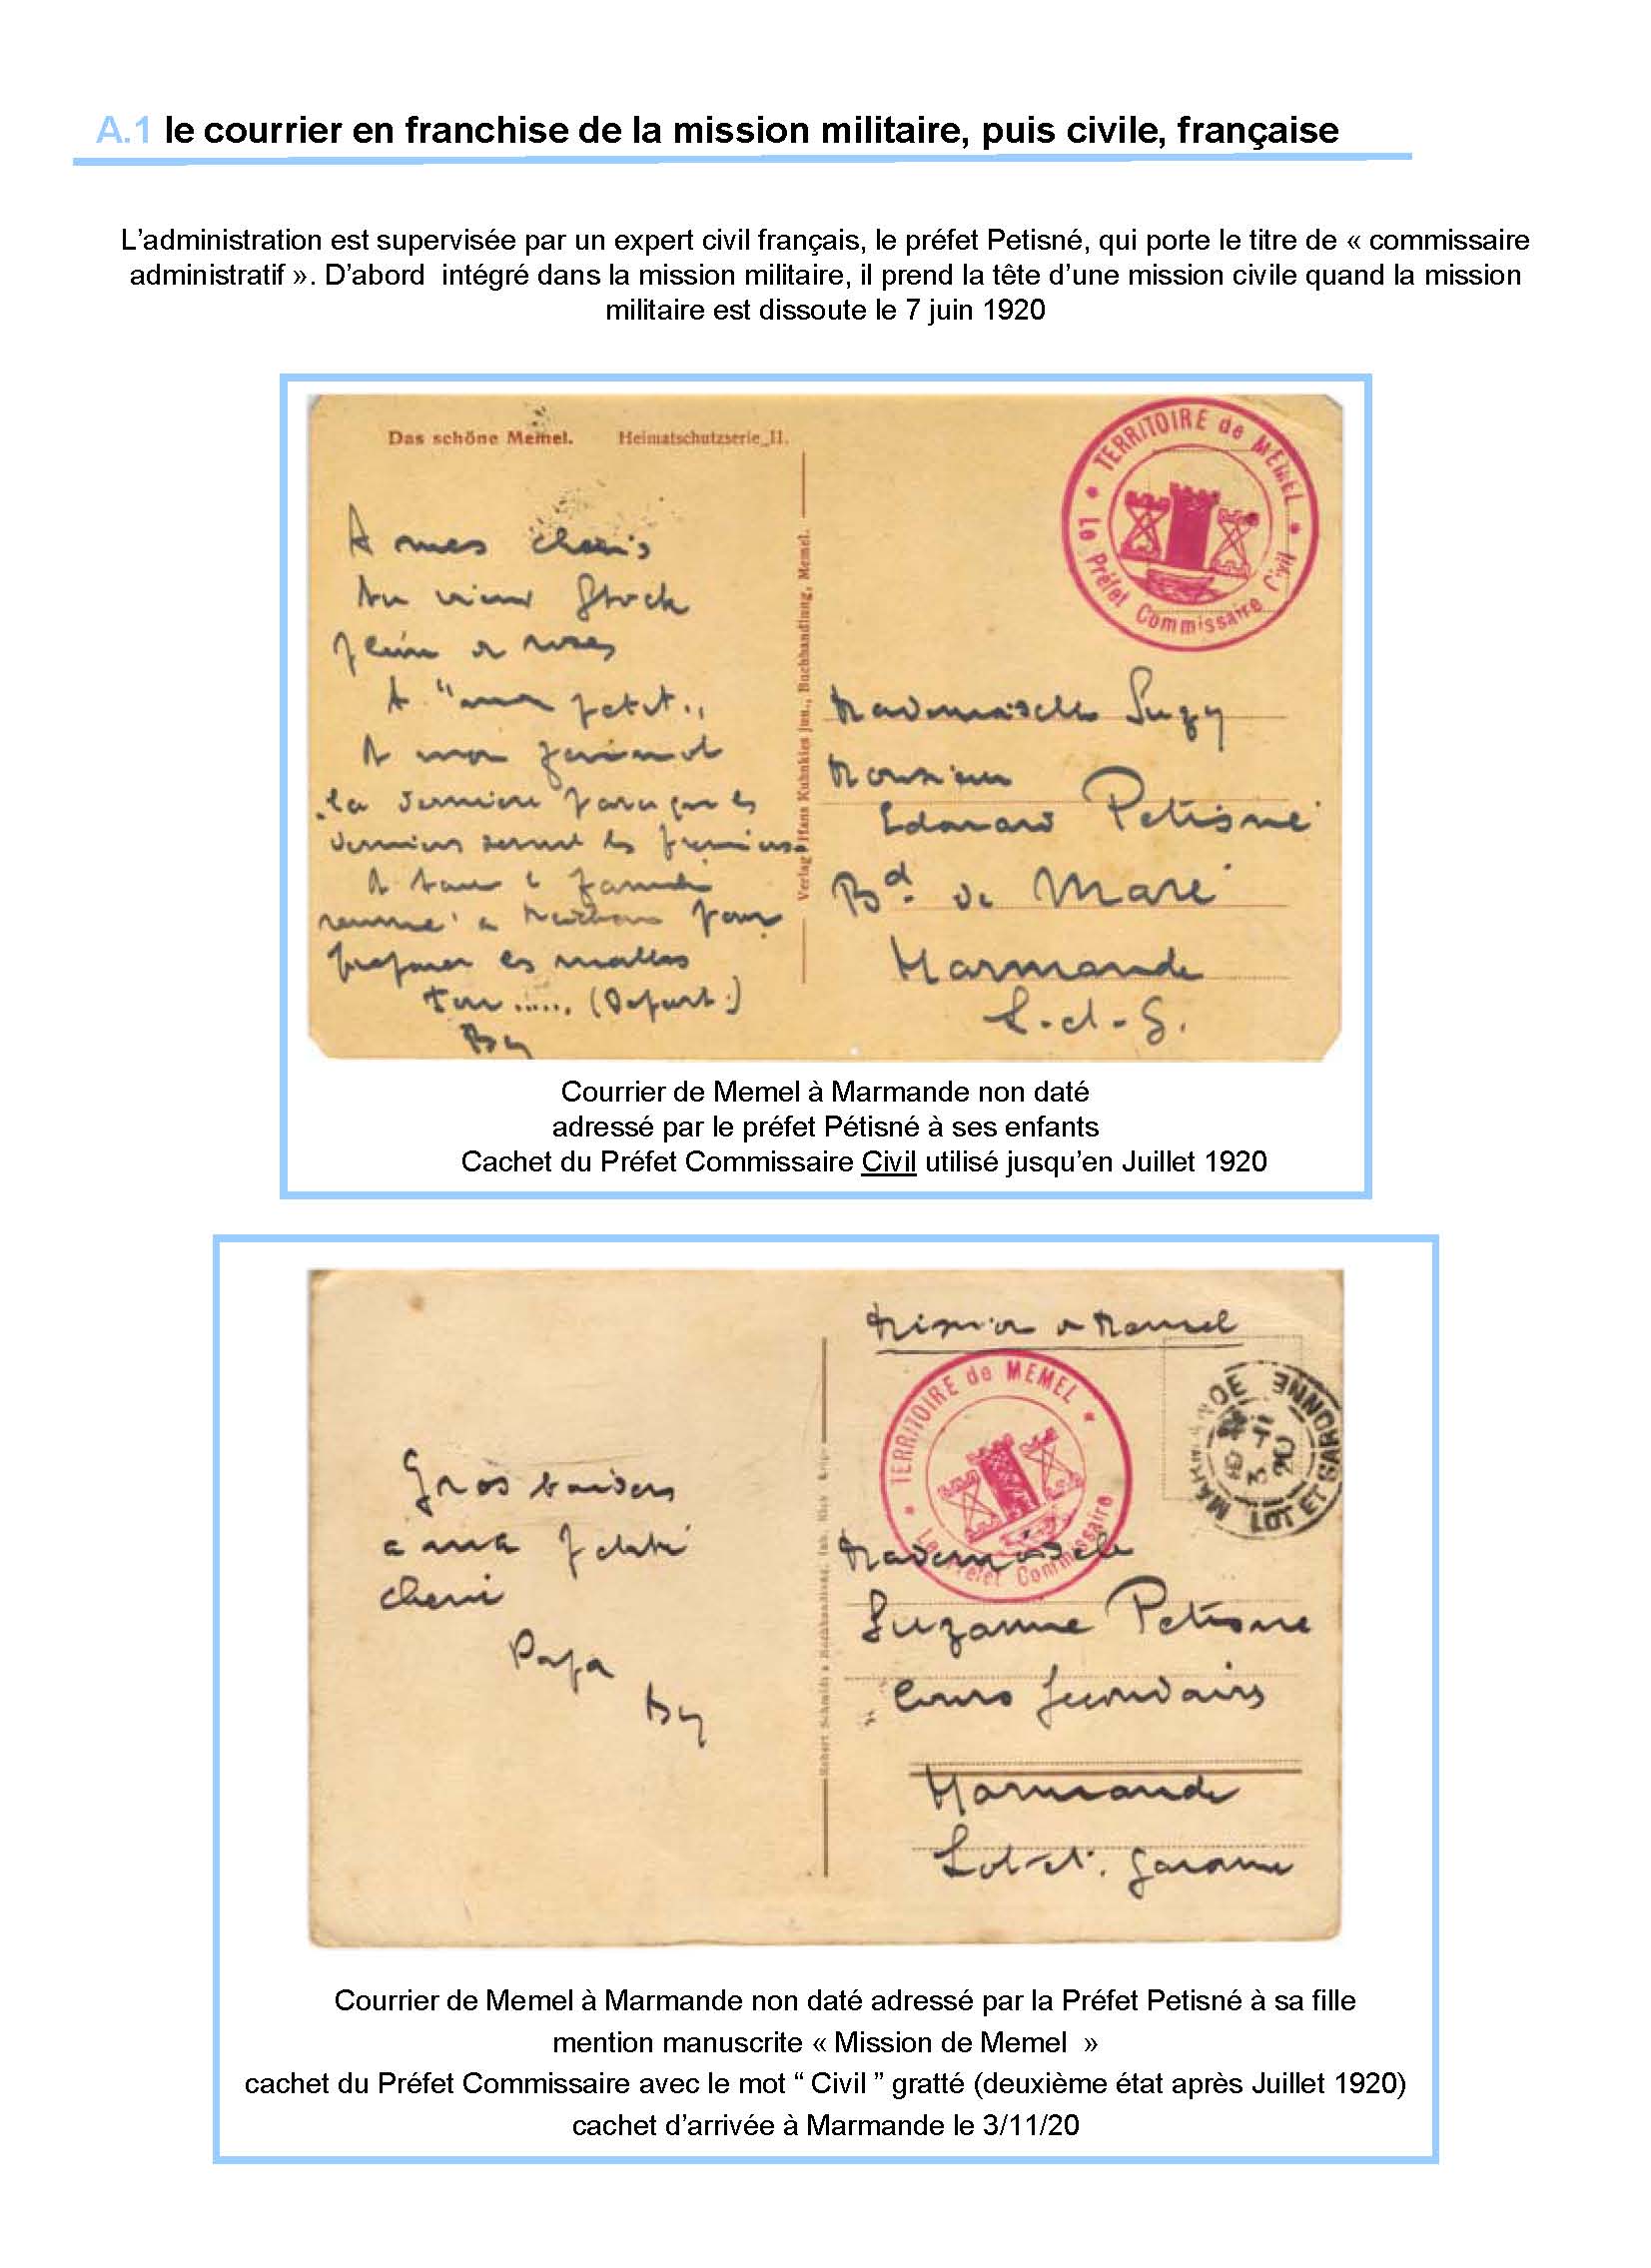 A.1 le courrier en franchise de la mission militaire, puis civile, française
L’administration est supervisée par un expert civil français, le préfet Petisné, qui porte le titre de « commissaire
administratif ». D’abord intégré dans la mission militaire, il prend la tête d’une mission civile quand la mission
militaire est dissoute le 7 juin 1920
Das schöne Memel. Heimatschutzserie II.
TERRITOIRE de MEMEL
Le Préfet Commissaire Civil
A mes chéris
Au vieux Stock
plein de roses
A "mon petit"
A mon
la dernière parce que les
derniers seront les premiers
A toute la famille
réunie à pour
préparer les malles
(Départ.)
By
Verlag Hans Kuhnkies jun., Buchhandlung, Memel.
Mademoiselle Suzy
Monsieur
Edouard Petisné
Bd. de Maré
Marmande
L-et-G.
Courrier de Memel à Marmande non daté
adressé par le préfet Pétisné à ses enfants
Cachet du Préfet Commissaire Civil utilisé jusqu’en Juillet 1920
Mission de Memel
TERRITOIRE de MEMEL
Le Préfet Commissaire
MARMANDE
3 20
LOT ET GARONNE
Gros baisers
a ma petite
cherie
Papa
By
Robert Schmidts Buchhandlung,
Mademoiselle
Suzanne Petisné
Cours Secondaires
Marmande
Lot-et-Garonne
Courrier de Memel à Marmande non daté adressé par la Préfet Petisné à sa fille
mention manuscrite « Mission de Memel »
cachet du Préfet Commissaire avec le mot “ Civil ” gratté (deuxième état après Juillet 1920)
cachet d’arrivée à Marmande le 3/11/20